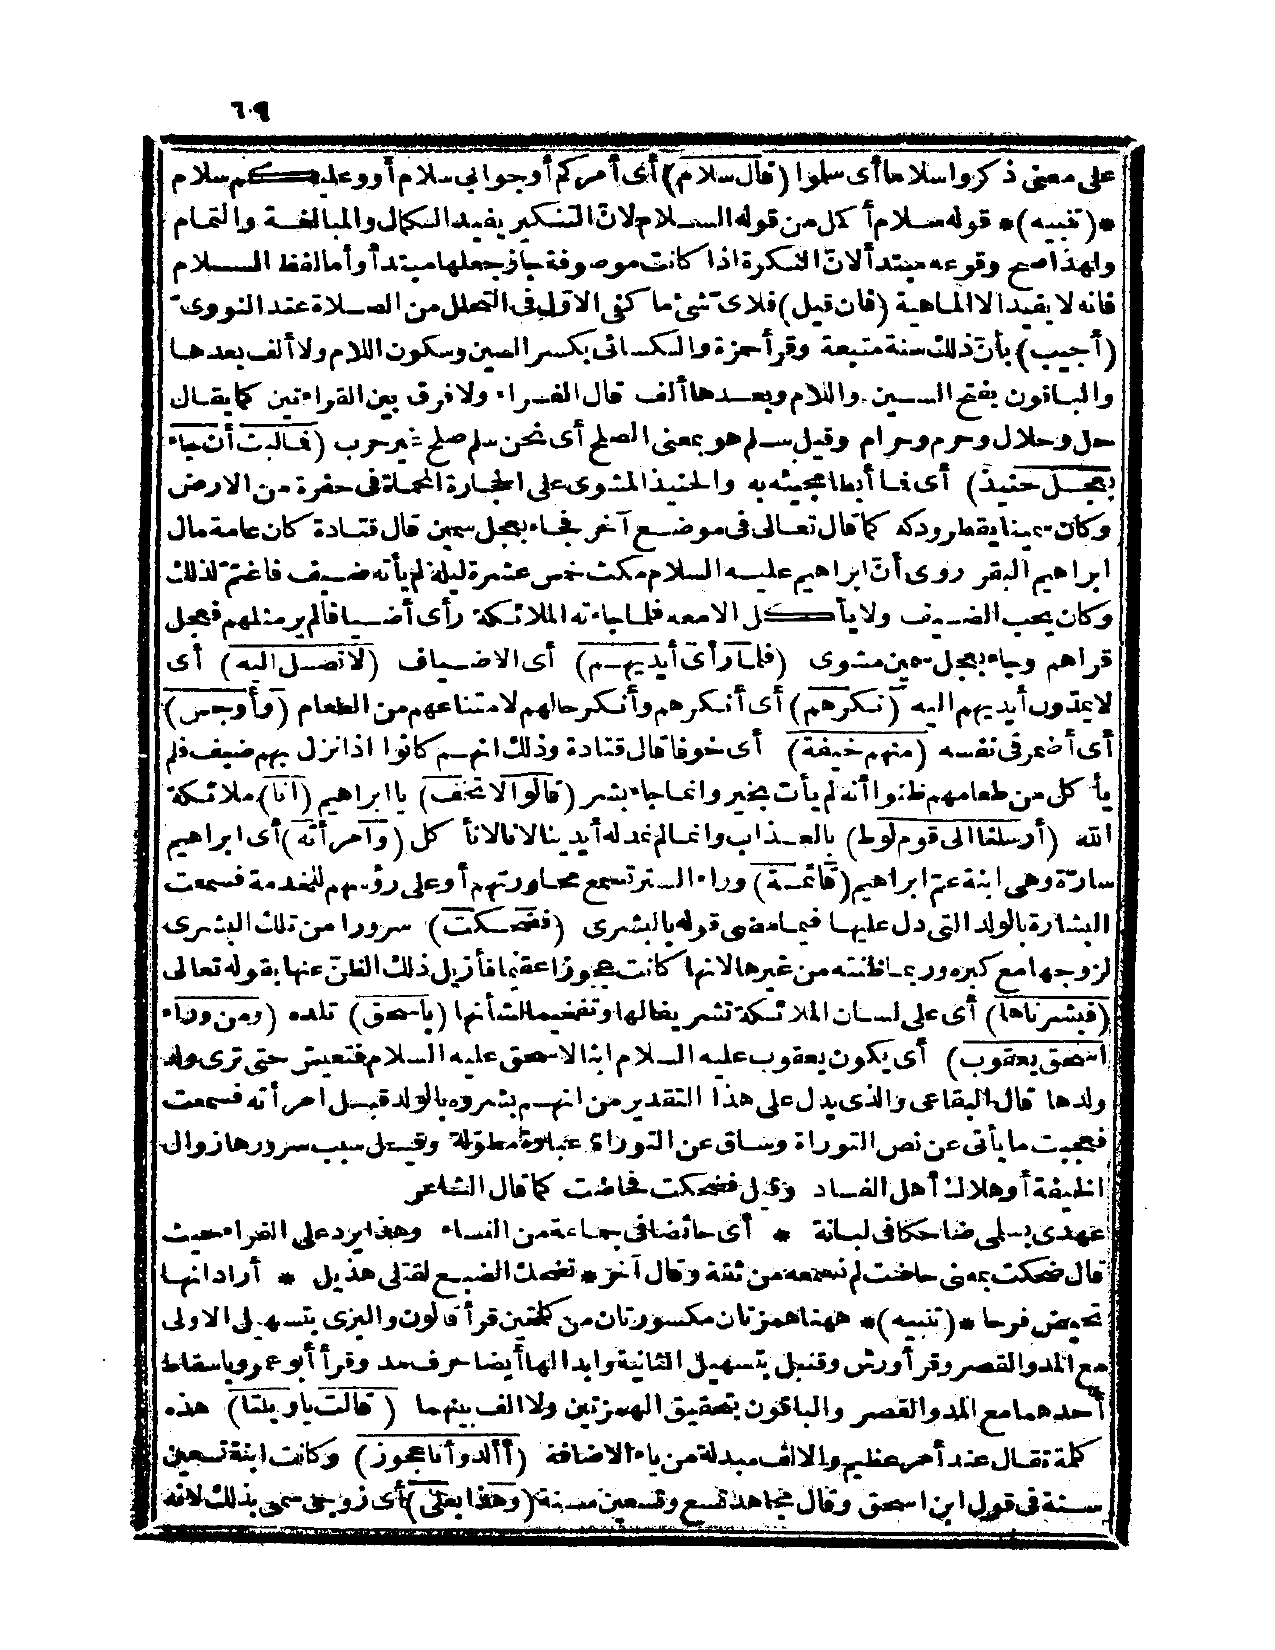 ٦٠٩
على معنى ذكروا سلاما أى سلموا (قال سلام) أى أمركم أو جوابى سلام أو وعليكم سلام
*(تنبيه)* قوله سلام أكمل من قوله السلام لانّ التنكير يفيد الكمال والمبالغة والتمام
ولهذا صح وقوعه مبتدأ لانّ النكرة اذا كانت موصوفة جاز جعلها مبتدأ وأما لفظ السلام
فانه لا يفيد الا الماهية (فان قيل) فلاىّ شئ ما كفى الاوّل فى التحلل من الصلاة عند النووىّ
(أجيب) بأنّ ذلك سنة متبعة وقرأ حمزة والكسائى بكسر السين وسكون اللام ولا ألف بعدها
والباقون بفتح السين واللام وبعدها ألف قال الفراء ولا فرق بين القراءتين كما يقال
حل وحلال وحرم وحرام وقيل سلم هو بمعنى الصلح أى نحن سلم صلح غير حرب (فما لبث أن جاء
بعجل حنيذ) أى فما أبطأ مجيئه به والحنيذ المشوى على الحجارة المحماة فى حفرة من الارض
وكان سمينا يقطر ودكه كما قال تعالى فى موضع آخر فجاء بعجل سمين قال قتادة كان عامة مال
ابراهيم البقر روى أنّ ابراهيم عليه السلام مكث خمس عشرة ليلة لم يأته ضيف فاغتمّ لذلك
وكان يحب الضيف ولا يأكل الا معه فلما جاءته الملائكة رأى أضيافا لم ير مثلهم فعجل
قراهم وجاء بعجل سمين مشوى (فلما رأى أيديهم) أى الاضياف (لا تصل اليه) أى
لا يمدّون أيديهم اليه (نكرهم) أى أنكرهم وأنكر حالهم لامتناعهم من الطعام (وأوجس)
أى أضمر فى نفسه (منهم خيفة) أى خوفا قال قتادة وذلك انهم كانوا اذا نزل بهم ضيف فلم
يأكل من طعامهم ظنوا أنه لم يأت بخير وانما جاء بشر (قالوا لا تخف) يا ابراهيم (انا) ملائكة
الله (أرسلنا الى قوم لوط) بالعذاب وانما لم نمد له أيدينا لانا لا نأكل (وامرأته) أى ابراهيم
سارّة وهى ابنة عم ابراهيم (قائمة) وراء الستر تسمع محاورتهم أو على رؤسهم للخدمة فسمعت
البشارة بالولد التى دل عليها فيما مضى قوله بالبشرى (فضحكت) سرورا من تلك البشرى
لزوجها مع كبره وربما ظنته من غيرها لانها كانت عجوزا عقيما فأزيل ذلك الظنّ عنها بقوله تعالى
(فبشرناها) أى على لسان الملائكة تشريفا لها وتفخيما لشأنها (باسحق) تلده (ومن وراء
اسحق يعقوب) أى يكون يعقوب عليه السلام ابنا لاسحق عليه السلام فتعيش حتى ترى ولد
ولدها قال البقاعى والذى يدل على هذا التقدير من انهم بشروه بالولد قبل امرأته فسمعت
فعجبت ما يأتى عن نص التوراة وساق عن التوراة عبارة مطوّلة وقيل سبب سرورها زوال
الخيفة أو هلاك أهل الفساد وقيل فضحكت فحاضت كما قال الشاعر
عهدى بسلمى ضاحكا فى لبانة * أى حائضا فى جماعة من النساء وهذا يرد على الفراء حيث
قال ضحكت بمعنى حاضت لم نسمعه من ثقة وقال آخر * تضحك الضبع لقتلى هذيل * أراد انها
تحيض فرحا *(تنبيه)* ههنا همزتان مكسورتان من كلمتين قرأ قالون والبزى بتسهيل الاولى
مع المد والقصر وقرأ ورش وقنبل بتسهيل الثانية وابدالها أيضا حرف مد وقرأ أبو عمرو باسقاط
أحدهما مع المد والقصر والباقون بتحقيق الهمزتين ولا ألف بينهما (قالت ياويلتا) هذه
كلمة تقال عند أمر عظيم والالف مبدلة من ياء الاضافة (أألد وأنا عجوز) وكانت ابنة تسعين
سنة فى قول ابن اسحق وقال مجاهد تسع وتسعين سنة (وهذا بعلى) أى زوجى سمى بذلك لانه